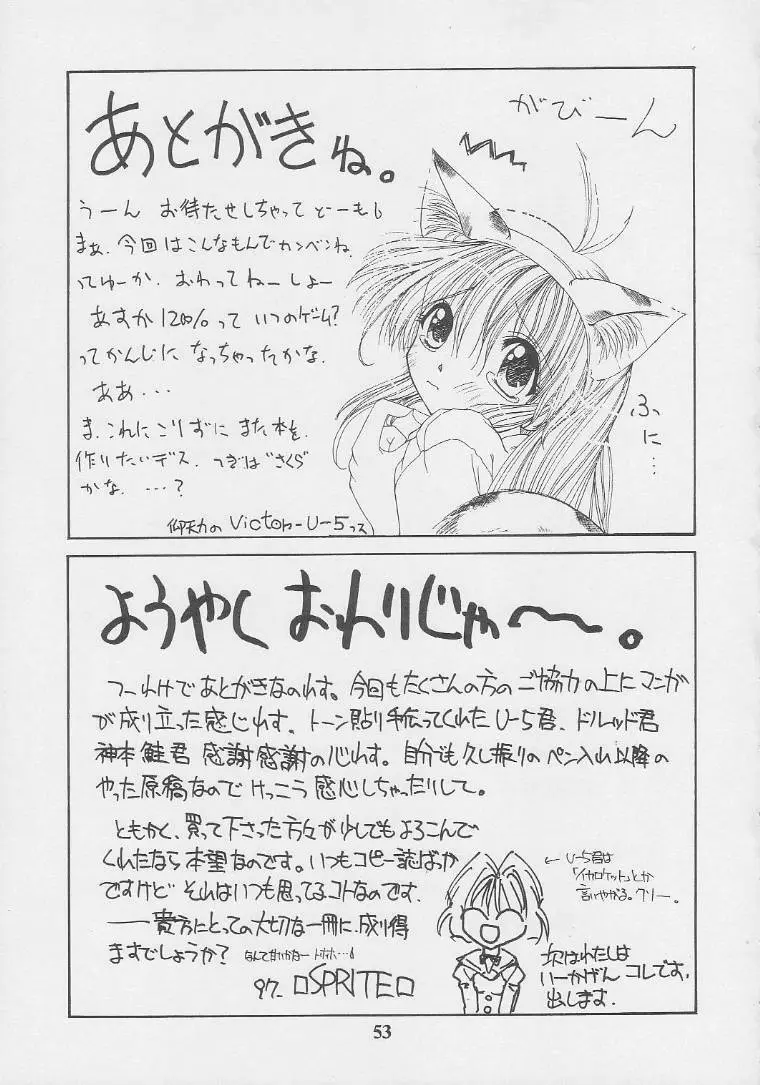 あとがきね。
がびーん
うーん お待たせしちゃって どーも6
まぁ、今回はこんなもんでカンベンね
ってゆーか、おわってねーしょー
あすか120%って いつのゲーム?
ってかんじに なっちゃったかな。
ああ・・・
ま、これにこりずに また本を
作りたいデス. つぎは"さくら"
かな. ・・・?
ふに…
Victor-U-5っス
ようやく おわりじゃ〜〜。
つーわけであとがきなのれす。今回もたくさんの方のご協力の上にマンガ
が成り立った感じれす、トーン貼り手伝ってくれたU-5君、ドルッド君
神本 鮭君 感謝感謝の心れす。自分でも久し振りのペン入れ以降の
やった原稿なので けっこう 感心しちゃったりして。
ともかく、買って下さった方々が少しでもよろこんで
くれたなら本望なのです。いつもコピー誌ばっか
ですけど それはいつも思ってるコトなのです.
——貴方にとっての大切な一冊に、成り得
ますでしょうか?
97_ □SPRITE□
← U-5君は
「イカロケット」とか
言いやがる。クリー。
次はわたしは
いーかげん コレです,
出します.
53